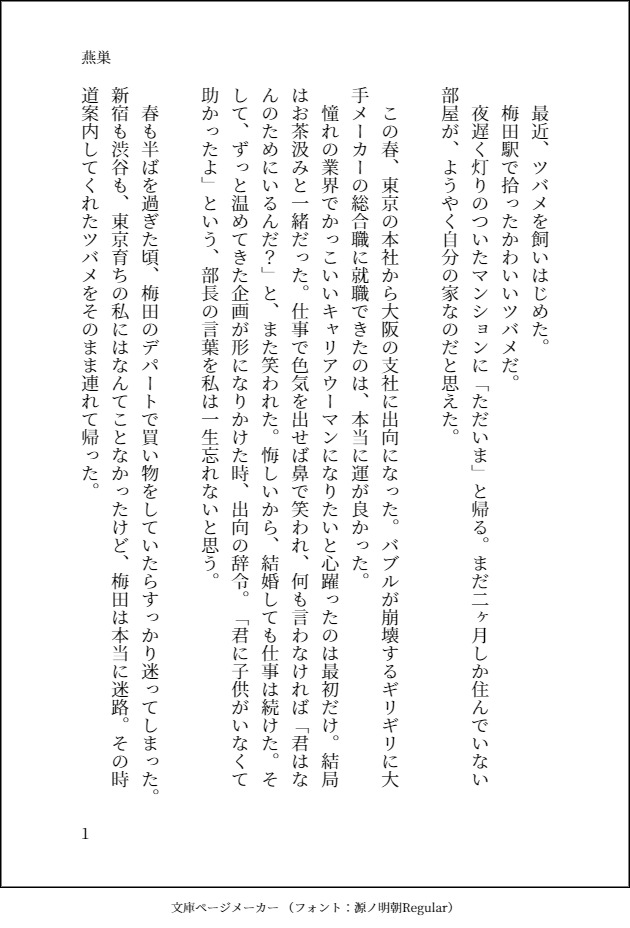 燕巣
最近、ツバメを飼いはじめた。
梅田駅で拾ったかわいいツバメだ。
夜遅く灯りのついたマンションに「ただいま」と帰る。まだ二ヶ月しか住んでいない
部屋が、ようやく自分の家なのだと思えた。
この春、東京の本社から大阪の支社に出向になった。バブルが崩壊するギリギリに大
手メーカーの総合職に就職できたのは、本当に運が良かった。
憧れの業界でかっこいいキャリアウーマンになりたいと心躍ったのは最初だけ。結局
はお茶汲みと一緒だった。仕事で色気を出せば鼻で笑われ、何も言わなければ「君はな
んのためにいるんだ？」と、また笑われた。悔しいから、結婚しても仕事は続けた。そ
して、ずっと温めてきた企画が形になりかけた時、出向の辞令。「君に子供がいなくて
助かったよ」という、部長の言葉を私は一生忘れないと思う。
春も半ばを過ぎた頃、梅田のデパートで買い物をしていたらすっかり迷ってしまった。
新宿も渋谷も、東京育ちの私にはなんてことなかったけど、梅田は本当に迷路。その時
道案内してくれたツバメをそのまま連れて帰った。
1
文庫ページメーカー（フォント：源ノ明朝Regular）